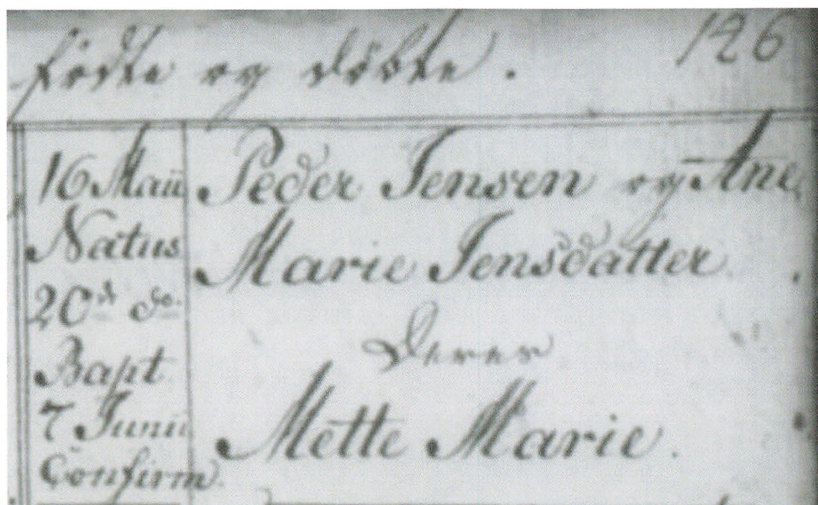 fødte og døbte. 126
16 Maii
Natus
20d do.
Bapt
7 Junii
Confirm.
Peder Jensen og Ane
Marie Jensdatter.
Deres
Mette Marie.